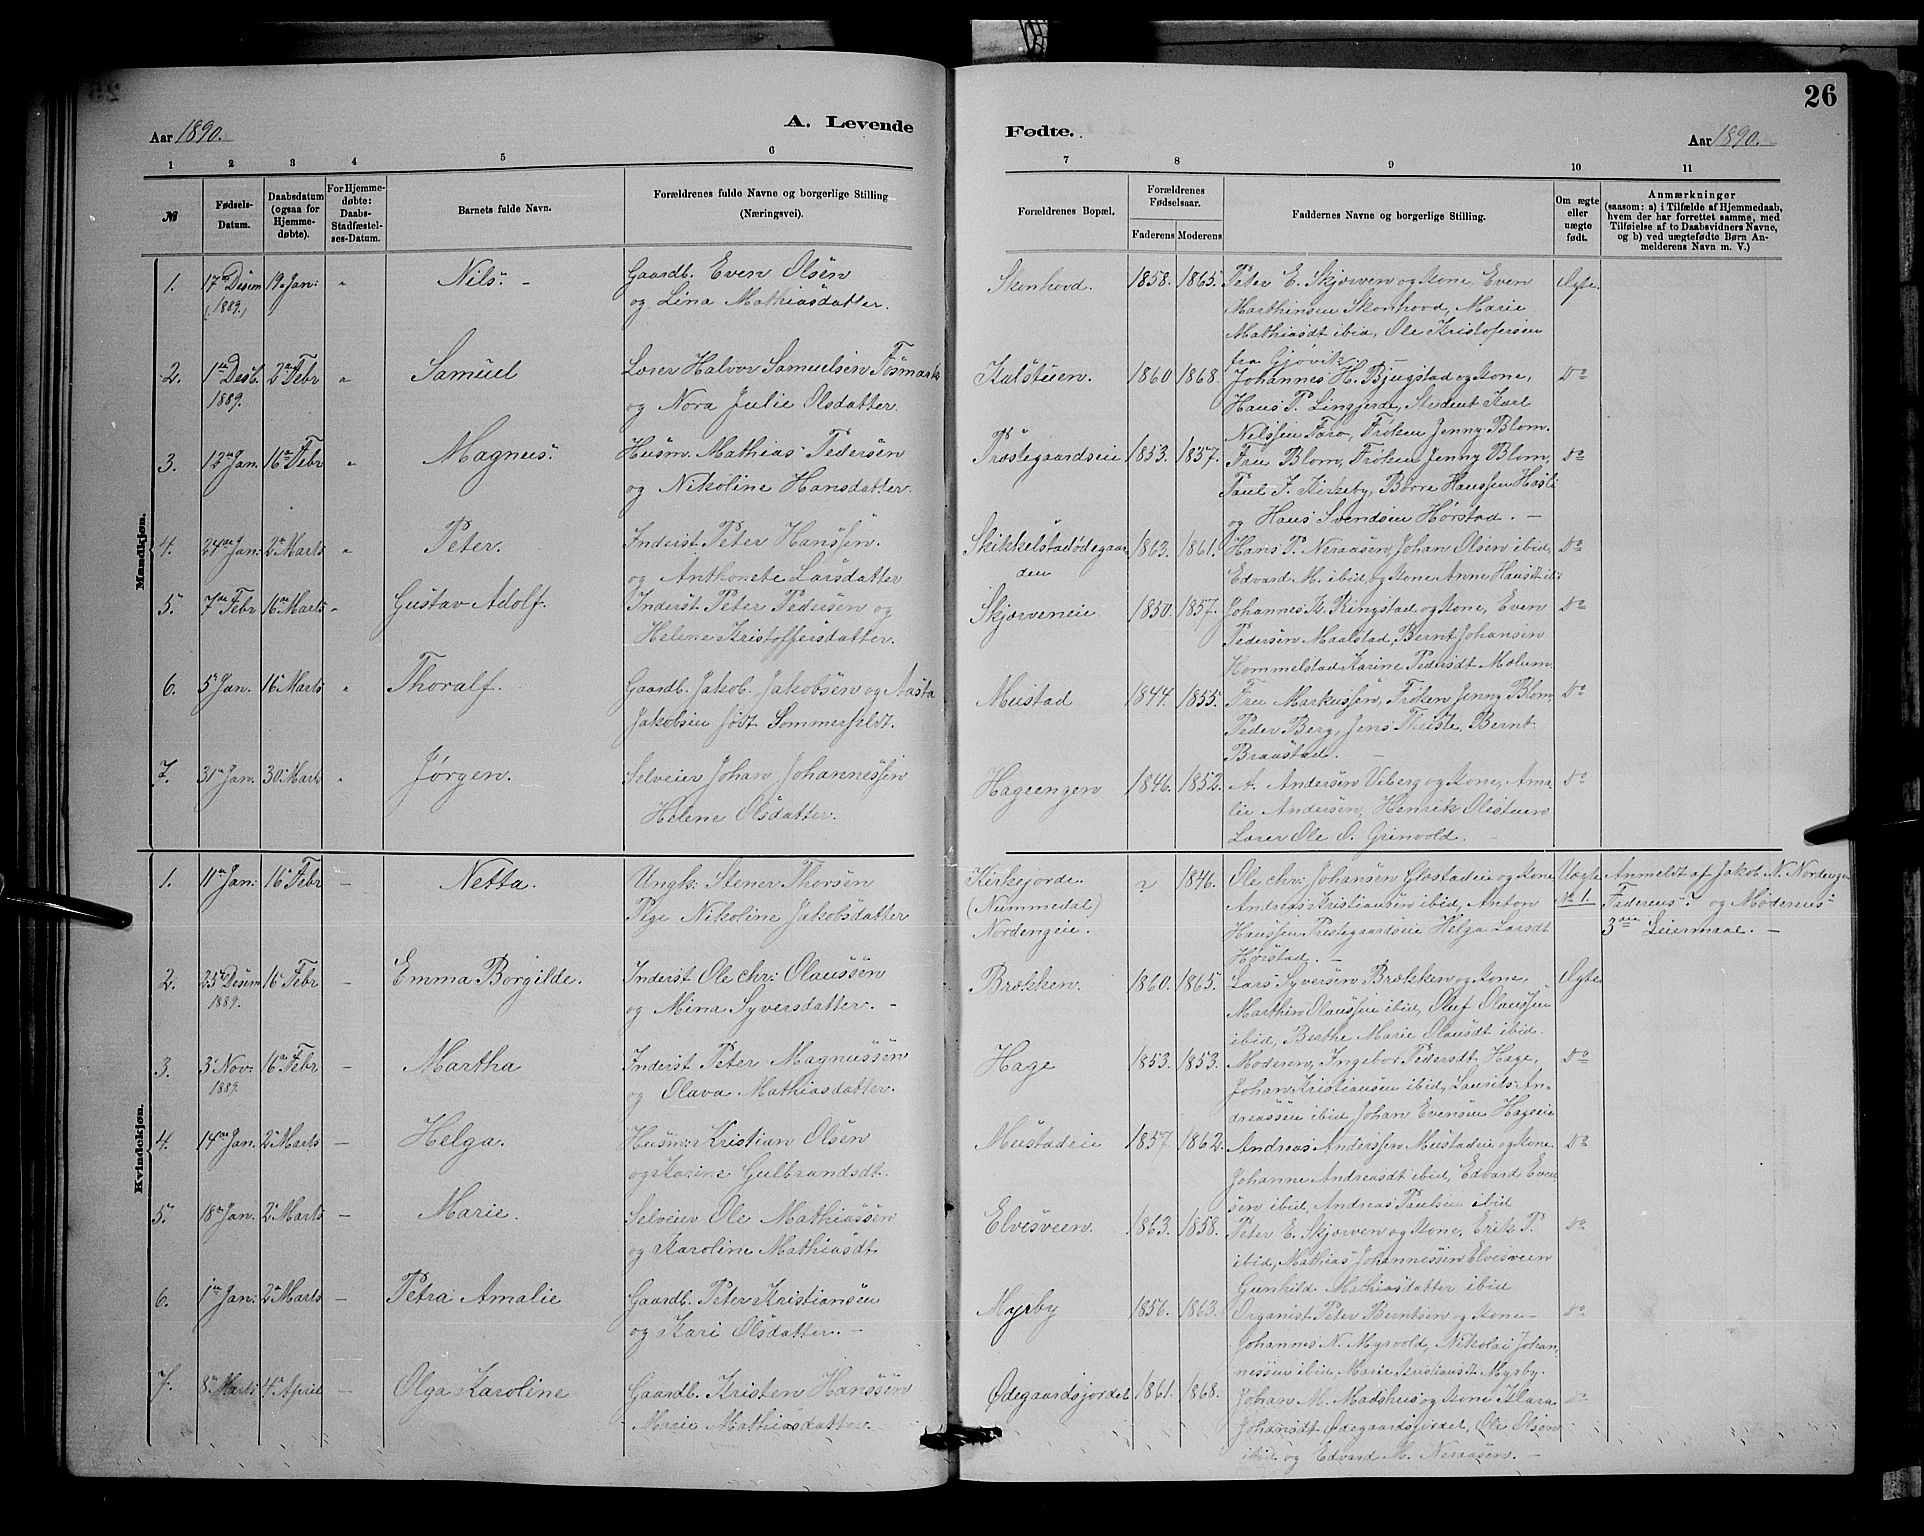 26
Aar 1890. A. Levende Fødte. Aar 1890.
1 2 3 4 5 6 7 8 9 10 11
№
Fødsels-
Datum.
Daabsdatum
(ogsaa for
Hjemme-
døbte).
For Hjemme-
døbte:
Daabs-
Stadfæstel-
ses-Datum.
Barnets fulde Navn.
Forældrenes fulde Navne og borgerlige Stilling
(Næringsvei).
Forældrenes Bopæl.
Forældrenes
Fødselsaar.
Faderens Moderens
Faddernes Navne og borgerlige Stilling.
Om ægte
eller
uægte
født.
Anmærkninger
(saasom: a) i Tilfælde af Hjemmedaab,
hvem der har forrettet samme, med
Tilføielse af to Daabsvidners Navne,
og b) ved uægtefødte Børn An-
melderens Navn m. V.)
Mandkjøn.
1. 17de Desem 19 Jan: " Nils. - Gaardb. Even Olsen Skonhovd. 1858. 1865. Peter E. Skjærven og Kone Even Ægte
(1889.) og Lina Mathiasdatter. Marthinsen Skonhovd, Marie
Mathiasdt ibid, Ole Kristofersen
fra Gjøvik. -
2. 1ste Desb. 2den Febr " Samuel Lærer Halvor Samuelsen Fosmark Kalstuen. 1860 1868. Johannes H. Bjugstad og Kone, Do
1889. og Nora Julie Olsdatter. Hans P. Lingjerde, Student Karl
Nilssen Faro, Frøken Jenny Blom.
3. 12te Jan. 16de Febr " Magnus. Husm. Mathias Pedersen Præstegaardseie 1853. 1857. Fru Blom, Frøken Jenny Blom, Do
og Nikoline Hansdatter. Paul J. Kirkeby, Børre Hanssen
og Hans Svendsen Hørstad. -
4. 24de Jan: 2den Marts " Peter. Inderst Peter Hanssen Skikkelstadødegaar- 1863. 1861. Hans P. Neraasen, Johan Olsen ibid, Do
og Anthonete Larsdatter den Edvard M. ibid, og Kone Anne Hansdt ibi
5. 7de Febr 16de Marts " Gustav Adolf. Inderst Peter Pedersen og Skjærveneie. 1850. 1857. Johannes K. Ringstad og Kone, Even Do
Helene Kristoffersdatter. Pedersen Maalstad, Bernt Johansen
Hommelstad Karine Pedersdt Molum.
6. 5te Jan. 16de Marts " Thoralf. Gaardb. Jakob Jakobsen og Aasta Mustad 1844. 1855. Fru Markussen, Frøken Jenny Blom, Do
Jakobsen født Sommerfeldt. Peder Berg, Jens Thuste, Bernt
Braastad. -
7. 31te Jan. 30te Marts " Jørgen. Selveier Johan Johannessen Hageengen 1846. 1852. A. Andersen Viberg og Kone, Ama- Do
Helene Olsdatter. lie Andersen, Henrik Olestuen
Lærer Ole O. Grinvold. -
Kvindekjøn.
1. 11te Jan: 16de Febr - Netta. Ungk: Stener Thorsen Kirkejorde 1846. Ole Chr: Johansen Glæstadeie og Kone Uægte Anmeldt af Jakob N. Nordengen
Pige Nikoline Jakobsdatter (Nummedal) Andreas Kristiansen ibid, Anton No 1. Faderens ? og Moderens
Nordengeie. Hanssen Prestegaardseie Helga Larsdt 3die Leiermaal. -
Hørstad. -
2. 25de Desem 16de Febr - Emma Borgilde. Inderst Ole Chr: Olaussen Brækken. 1860. 1865. Lars Syversen Brækken og Kone, Ægte
1889. og Mina Syversdatter. - Marthin Olaussen ibid, Oluf Olaussen
ibid, Berthe Marie Olausdt ibid.
3. 3de Nov: 16de Febr - Martha Inderst Peter Magnussen Hage 1853. 1853. Moderen, Ingebor Pedersdt Hage, Do
1889. og Olava Mathiasdatter. Johan Kristiansen ibid, Laurits An-
dreassen ibid, Johan Evensen Hageeie
4. 14de Jan. 2den Marts - Helga. Husm: Kristian Olsen Mustadeie 1857. 1862. Andreas Anderssen Mustadeie og Kone Do
og Karine Gulbrandsdt. Johanne Andreasdt ibid, Edvard Even
sen ibid, Andreas Paulsen ibid
5. 18de Jan. 2den Marts - Marie. Selveier Ole Mathiassen Elvesveen. 1863. 1858. Peter E. Skjærven og Kone, Erik P. Do
og Karoline Mathiasdt. ibid, Mathias Johannessen Elvesveen
Gunhild Mathiasdatter ibid
6. 1ste Jan: 2den Marts - Petra Amalie Gaardb. Peter Kristiansen Myrby 1856. 1863. Organist Peter Berntsen og Kone - Do
og Kari Olsdatter. - Johannes N. Myrvold, Nikolai Johan-
nessen ibid Marie Kristiansdt Myrby.
7. 8de Marts 4de April - Olga Karoline Gaardb. Kristen Hanssen Ødegaardsjordet 1861. 1868. Johan M. Madshus og Kone Klara Do
Marie Mathiasdatter. Johansdt Ødegaardsjordet, Ole Olsen
ibid og Edvard M. Neraasen. -